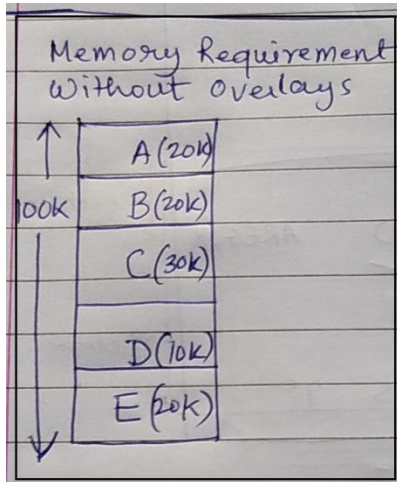 Memory Requirement
Without Overlays
A(20K)
100K
B(20K)
C(30K)
D(10K)
E(20K)